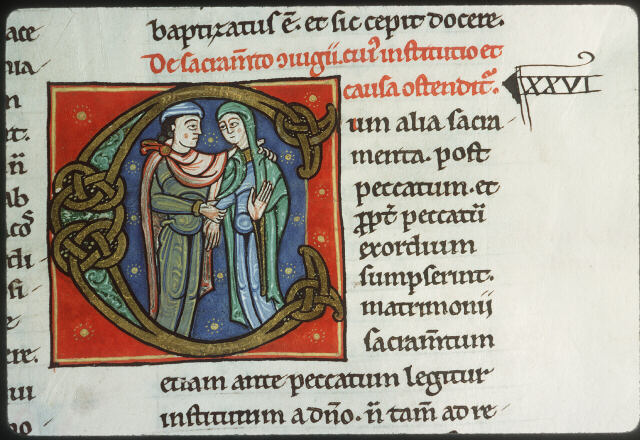 baptizatus ē. et sic cepit docere.
De sacram̄to ɔiugii. cui᾽ institutio et
causa ostendit᷑.
XXVI
Cum alia sacra
menta. post
peccatum. et
ꝓpt̄ peccatū
exordium
sumpserunt.
matrimonii
sacram̄tum
etiam ante peccatum legitur
institutum a dn̄o. n̄ tam̄ ad re